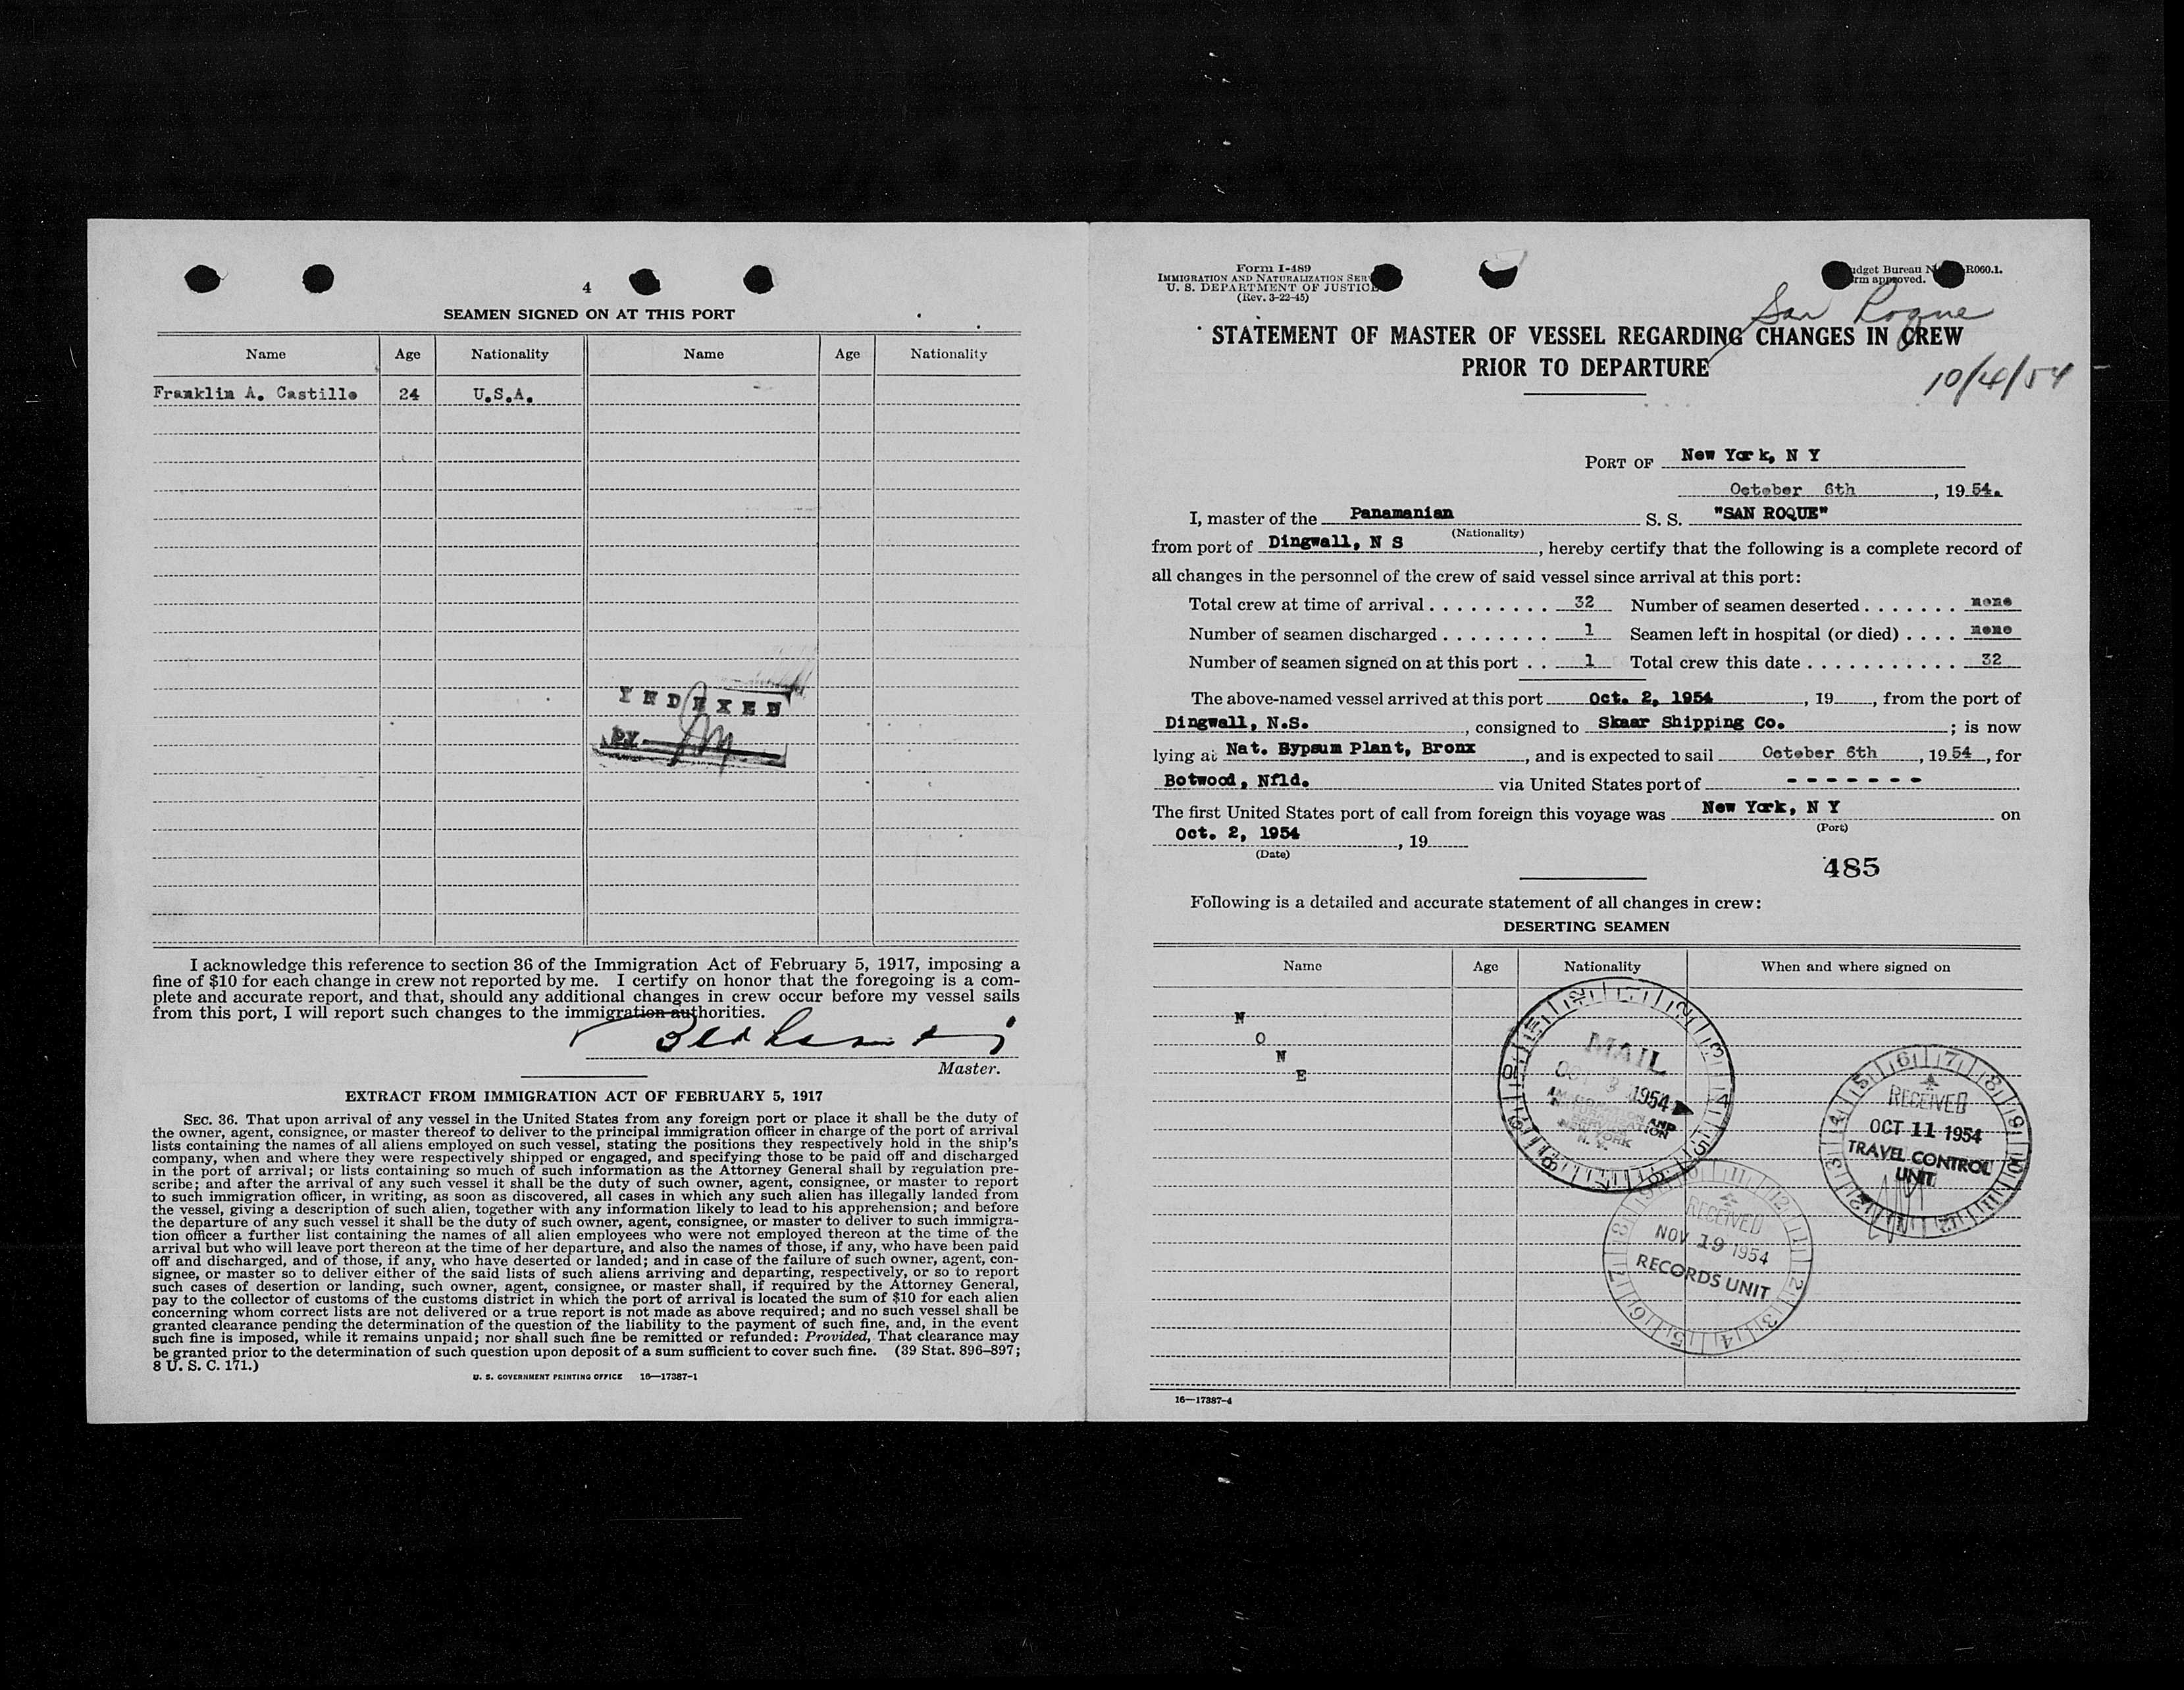 4
SEAMEN SIGNED ON AT THIS PORT
Name Age Nationality Name Age Nationality
Franklin A. Castillo 24 U.S.A.
INDEXED
BY
I acknowledge this reference to section 36 of the Immigration Act of February 5, 1917, imposing a
fine of $10 for each change in crew not reported by me. I certify on honor that the foregoing is a com-
plete and accurate report, and that, should any additional changes in crew occur before my vessel sails
from this port, I will report such changes to the immigration authorities.
Master.
EXTRACT FROM IMMIGRATION ACT OF FEBRUARY 5, 1917
SEC. 36. That upon arrival of any vessel in the United States from any foreign port or place it shall be the duty of
the owner, agent, consignee, or master thereof to deliver to the principal immigration officer in charge of the port of arrival
lists containing the names of all aliens employed on such vessel, stating the positions they respectively hold in the ship's
company, when and where they were respectively shipped or engaged, and specifying those to be paid off and discharged
in the port of arrival; or lists containing so much of such information as the Attorney General shall by regulation pre-
scribe; and after the arrival of any such vessel it shall be the duty of such owner, agent, consignee, or master to report
to such immigration officer, in writing, as soon as discovered, all cases in which any such alien has illegally landed from
the vessel, giving a description of such alien, together with any information likely to lead to his apprehension; and before
the departure of any such vessel it shall be the duty of such owner, agent, consignee, or master to deliver to such immigra-
tion officer a further list containing the names of all alien employees who were not employed thereon at the time of the
arrival but who will leave port thereon at the time of her departure, and also the names of those, if any, who have been paid
off and discharged, and of those, if any, who have deserted or landed; and in case of the failure of such owner, agent, con-
signee, or master so to deliver either of the said lists of such aliens arriving and departing, respectively, or so to report
such cases of desertion or landing, such owner, agent, consignee, or master shall, if required by the Attorney General,
pay to the collector of customs of the customs district in which the port of arrival is located the sum of $10 for each alien
concerning whom correct lists are not delivered or a true report is not made as above required; and no such vessel shall be
granted clearance pending the determination of the question of the liability to the payment of such fine, and, in the event
such fine is imposed, while it remains unpaid; nor shall such fine be remitted or refunded: Provided, That clearance may
be granted prior to the determination of such question upon deposit of a sum sufficient to cover such fine. (39 Stat. 896–897;
8 U. S. C. 171.)
U. S. GOVERNMENT PRINTING OFFICE 16—17387-1
Form I-489
IMMIGRATION AND NATURALIZATION SERV
U. S. DEPARTMENT OF JUSTICE
(Rev. 3-22-45)
udget Bureau N R060.1.
rm approved.
San Roque
STATEMENT OF MASTER OF VESSEL REGARDING CHANGES IN CREW
PRIOR TO DEPARTURE
10/4/54
PORT OF New York, N Y
October 6th, 19 54.
I, master of the Panamanian S. S. "SAN ROQUE"
(Nationality)
from port of Dingwall, N S, hereby certify that the following is a complete record of
all changes in the personnel of the crew of said vessel since arrival at this port:
Total crew at time of arrival . . . . . . . . . 32 Number of seamen deserted . . . . . . . none
Number of seamen discharged . . . . . . . . 1 Seamen left in hospital (or died) . . . . none
Number of seamen signed on at this port . . 1 Total crew this date . . . . . . . . . . . . 32
The above-named vessel arrived at this port Oct. 2, 1954, 19, from the port of
Dingwall, N.S., consigned to Skaar Shipping Co.; is now
lying at Nat. Gypsum Plant, Bronx, and is expected to sail October 6th, 19 54, for
Botwood, Nfld. via United States port of - - - - - - -.
The first United States port of call from foreign this voyage was New York, N Y on
(Port)
Oct. 2, 1954, 19
(Date)
485
Following is a detailed and accurate statement of all changes in crew:
DESERTING SEAMEN
Name Age Nationality When and where signed on
N
O
N
E
MAIL
1954
IMMIGRATION AND
NATURALIZATION
SERVICE
NEW YORK
N. Y.
RECEIVED
OCT 11 1954
TRAVEL CONTROL
UNIT
RECEIVED
NOV 19 1954
RECORDS UNIT
16—17387-4